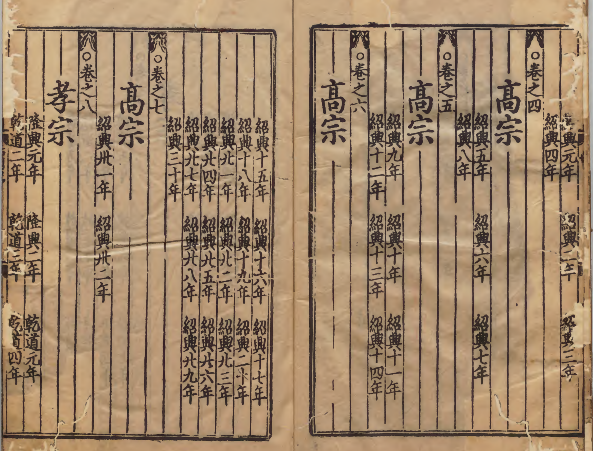 興元年 紹興二年 紹興三年
紹興四年
○卷之四
髙宗
紹興五年 紹興六年 紹興七年
紹興八年
○卷之五
髙宗
紹興九年 紹興十年 紹興十一年
紹興十二年 紹興十三年 紹興十四年
○卷之六
髙宗
紹興十五年 紹興十六年 紹興十七年
紹興十八年 紹興十九年 紹興二十年
紹興廿一年 紹興廿二年 紹興廿三年
紹興廿四年 紹興廿五年 紹興廿六年
紹興廿七年 紹興廿八年 紹興廿九年
紹興三十年
○卷之七
髙宗
紹興卅一年 紹興卅二年
○卷之八
孝宗
隆興元年 隆興二年 乾道元年
乾道二年 乾道三年 乾道四年